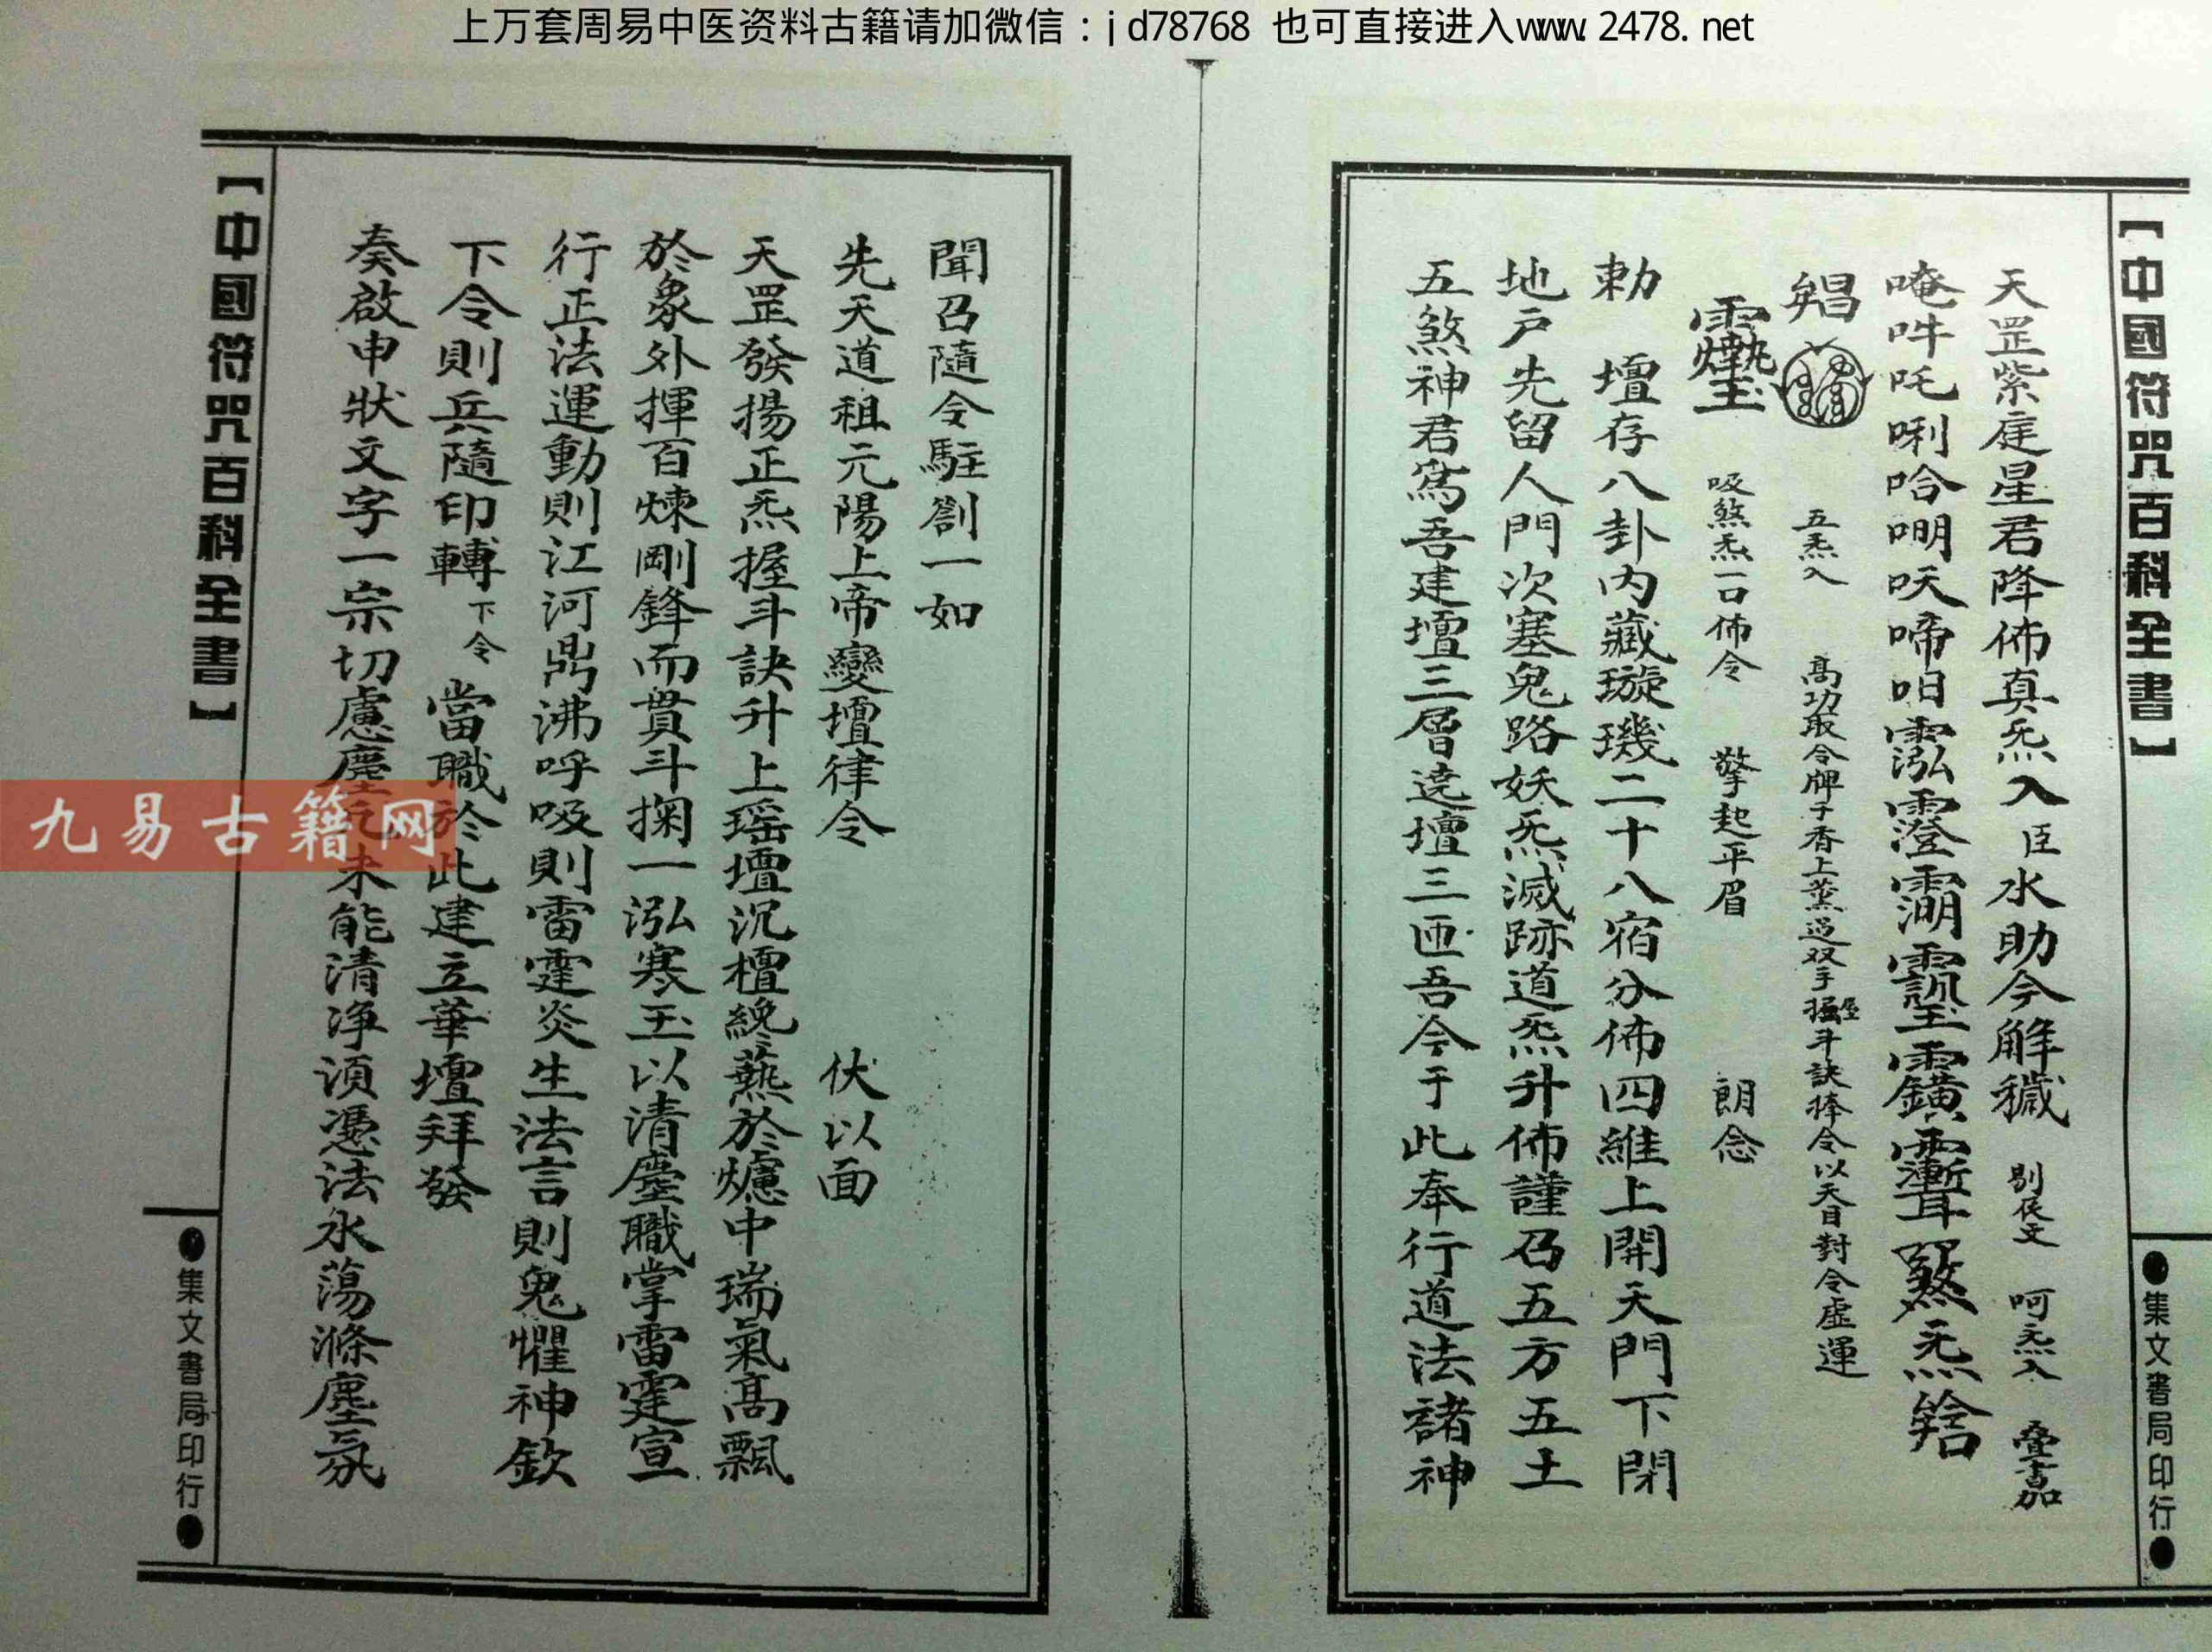 上万套周易中医资料古籍请加微信：jd78768 也可直接进入www.2478.net
【中國符咒百科全書】
●集文書局印行●
天罡紫庭星君降佈真炁入臣水助今解穢 剔佞文 呵炁入 疊書嘉
唵吽吒唎哈嘲呋啼呬
五炁入 高功取令牌于香上薰過双手握斗訣捧令以天目對令虛運
吸煞炁一口佈令 擎起平眉 朗念
勅 壇存八卦內藏璇璣二十八宿分佈四維上開天門下閉
地戶先留人門次塞鬼路妖炁滅跡道炁升佈謹召五方五土
五煞神君爲吾建壇三層遶壇三匝吾今于此奉行道法諸神
聞召隨令駐劄一如
先天道祖元陽上帝變壇律令 伏以面
天罡發揚正炁握斗訣升上瑤壇沉檀纔爇於爐中瑞氣高飄
於象外揮百煉剛鋒而貫斗掬一泓寒玉以清塵職掌雷霆宣
行正法運動則江河鼎沸呼吸則雷霆炎生法言則鬼懼神欽
下令則兵隨印轉下令 當職於此建立華壇拜發
奏啟申狀文字一宗切慮塵氛未能清净須憑法水蕩滌塵氛
【中國符咒百科全書】
●集文書局印行●
九易古籍网